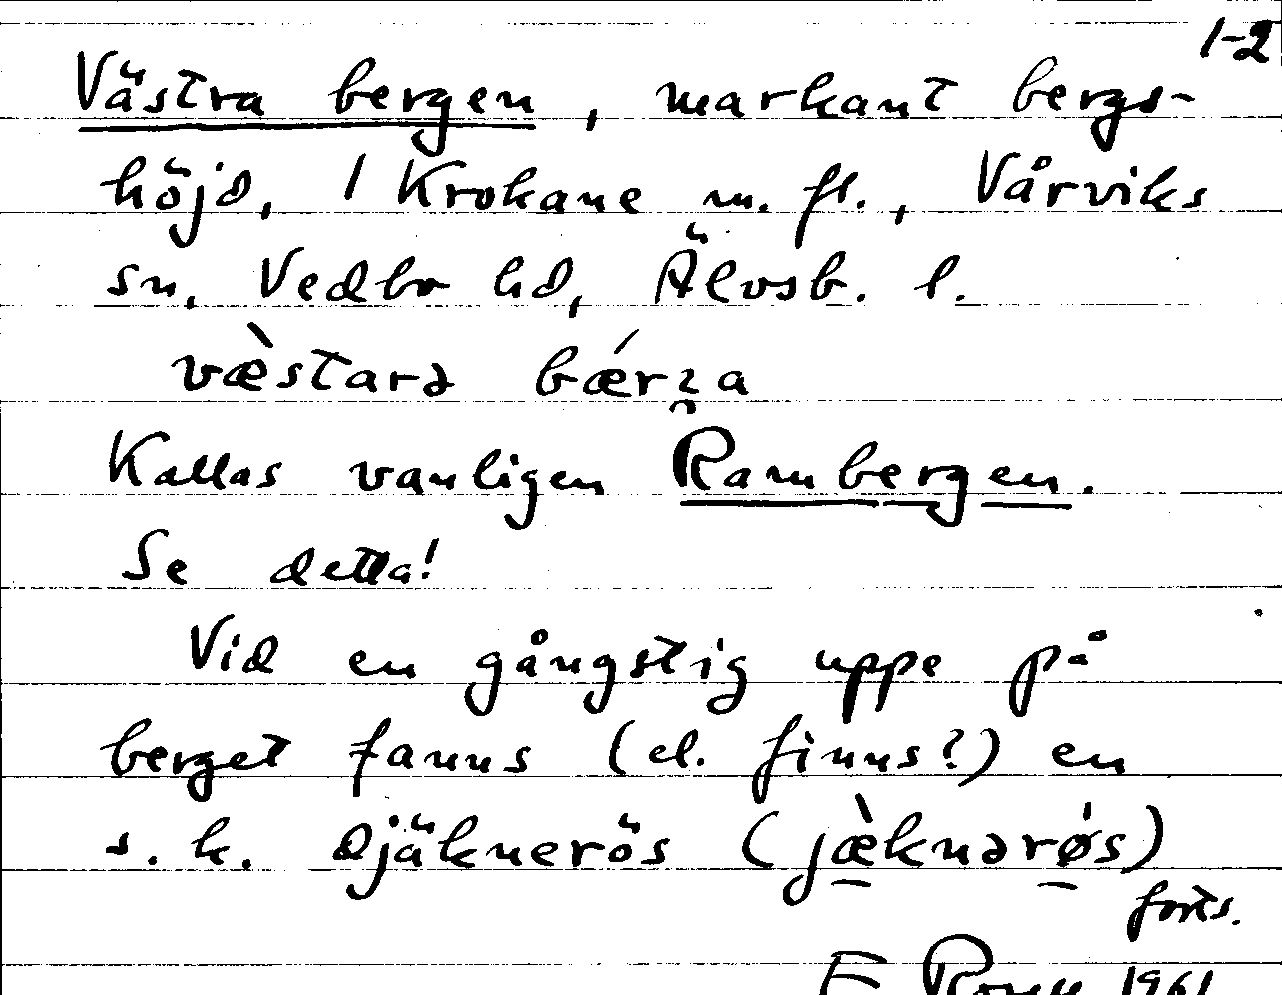 1-2
Västra bergen, markant bergs-
höjd, 1 Krokane m. fl., Vårviks
sn, Vedbo hd, Älvsb. l.
væ̀starə bǽrꝛa
Kallas vanligen Rambergen.
Se detta!
Vid en gångstig uppe på
berget fanns (el. finns?) en
s. k. djäknerös (jæ̀knərø̍s)
forts.
1961